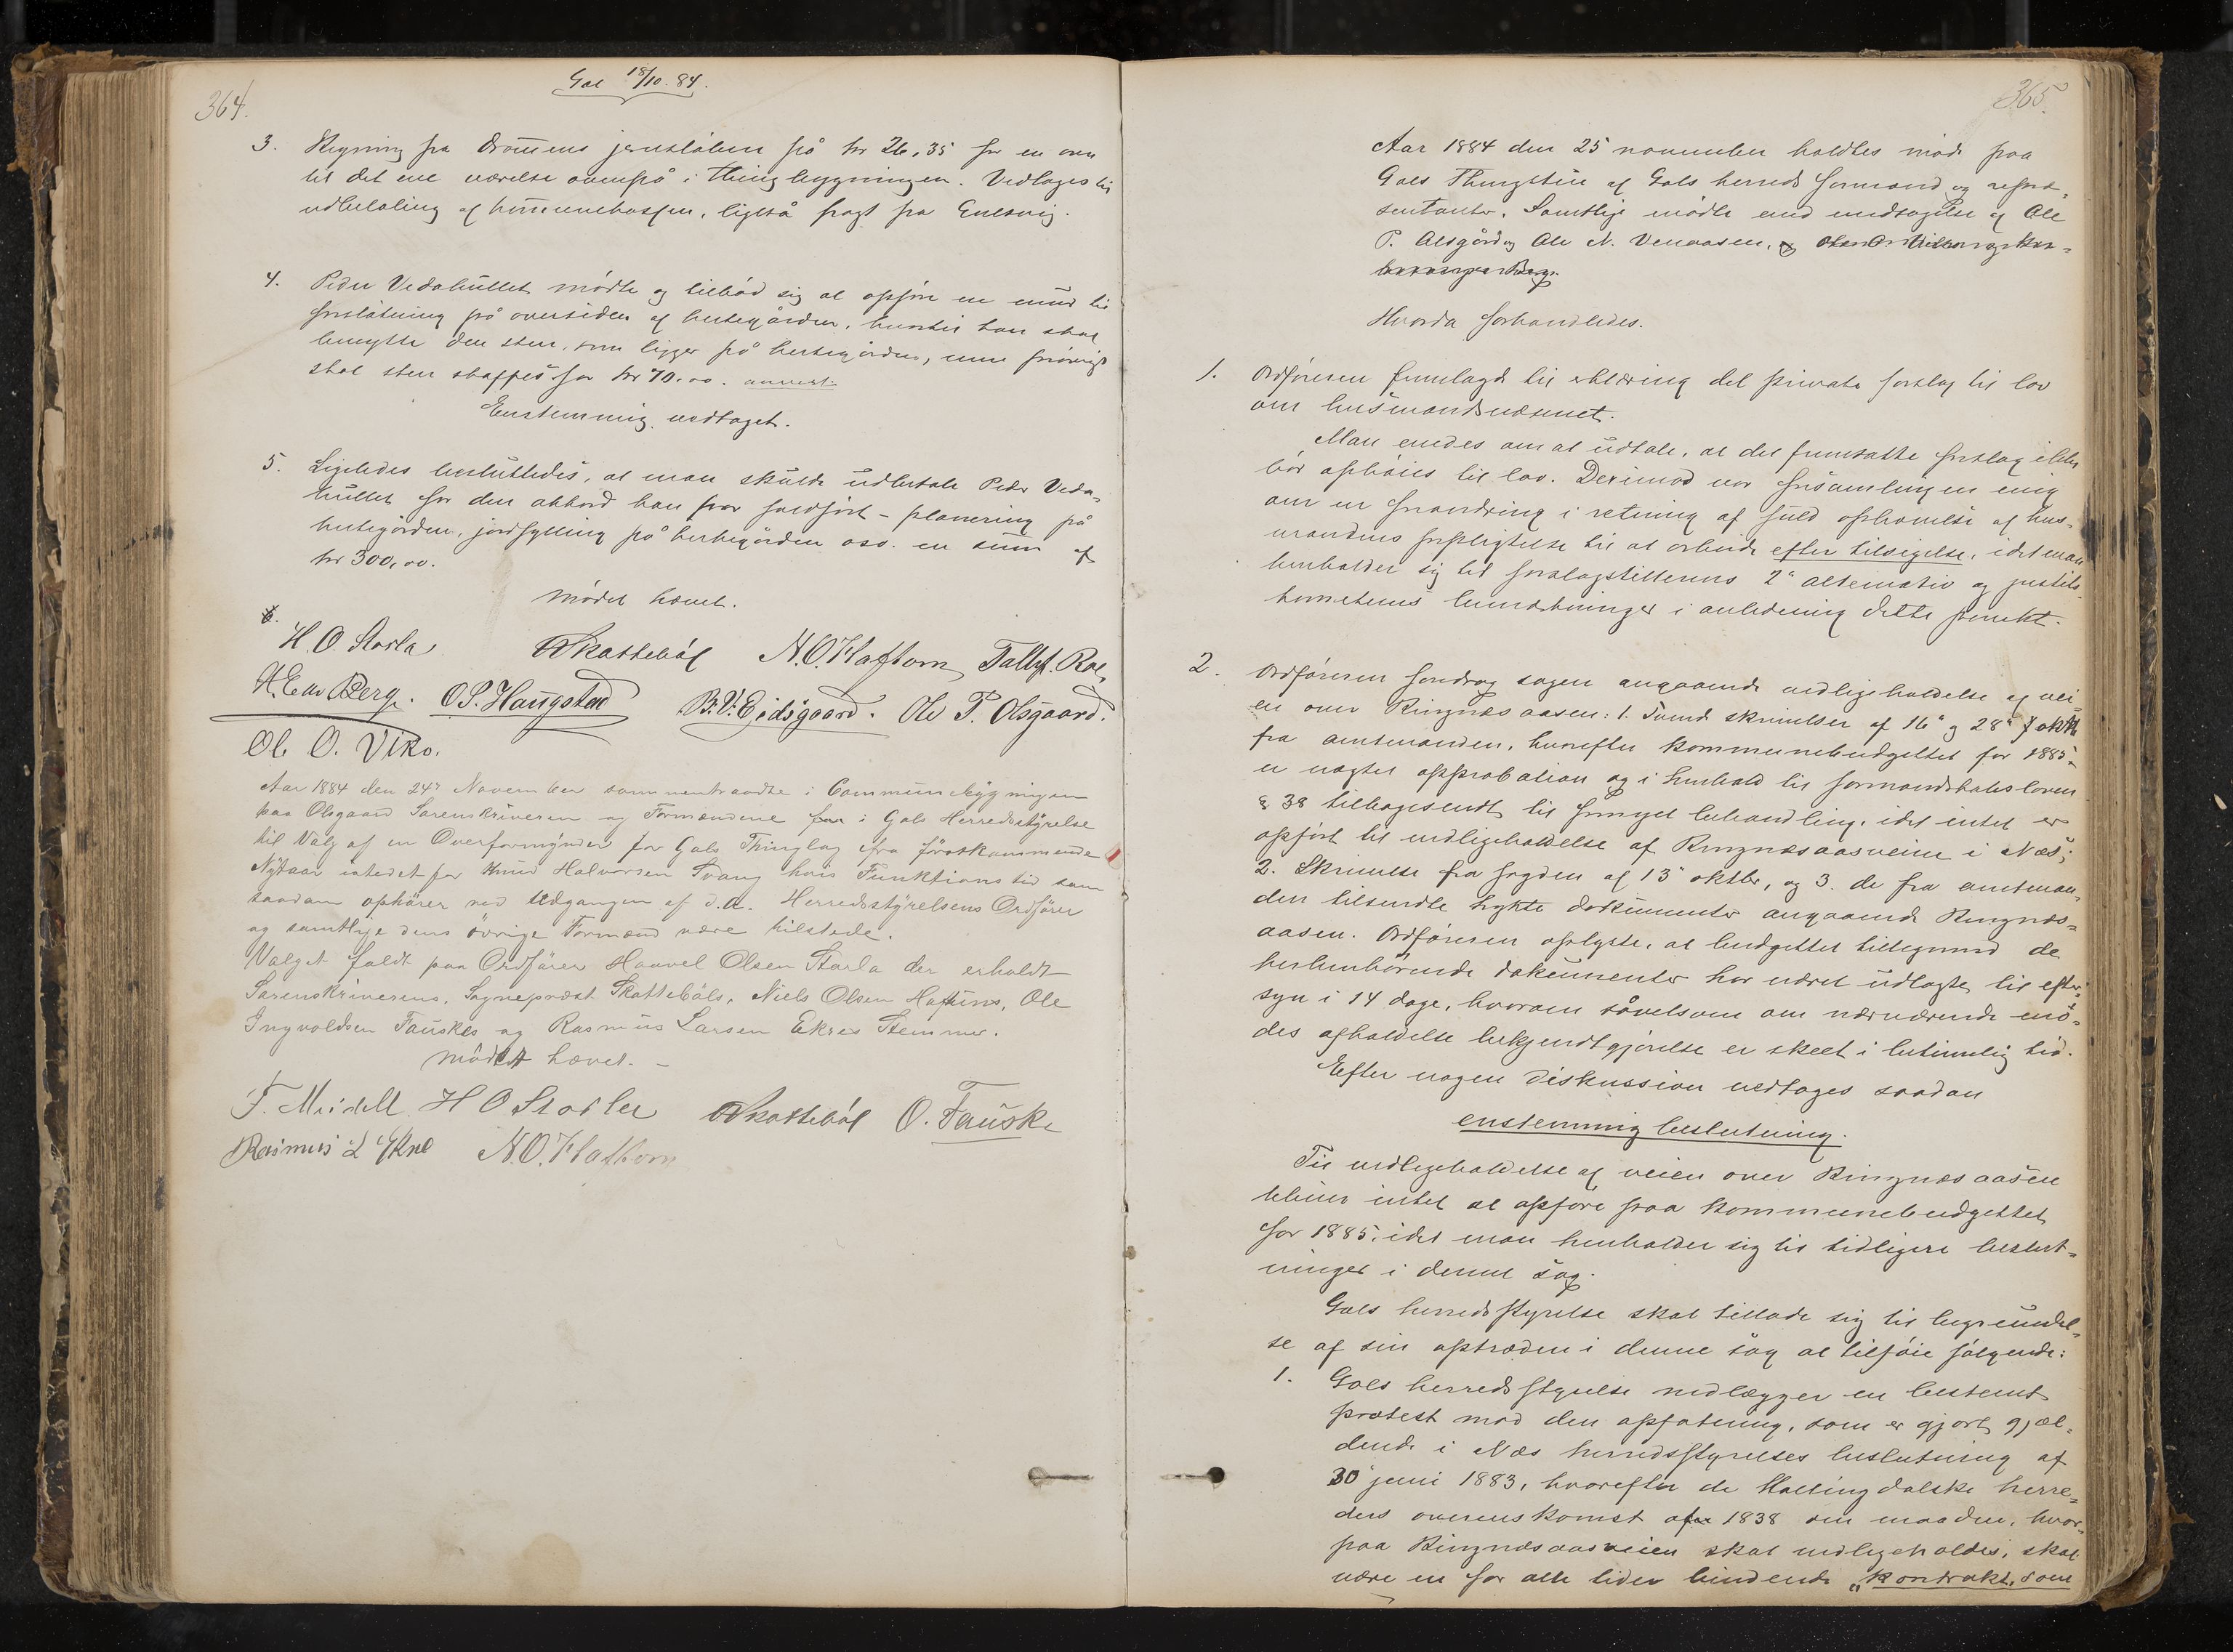 364.
Gol 18/10. 84.
3. Regning fra Drammens jernstøberi på kr 26,35 for en ovn
til det ene værelse ovenpå i Thingbygningen. Vedtages til
udbetaling af kommunekassen, ligeså fragt fra Gulsvig.
4. Peder Vedahullet mødte og tilbød sig at opføre en mur til
forstøtning på oversiden af hestegården, hvortil han skal
benytte den sten, som ligger på hestegården, men forøvrigt
skal sten skaffes for kr 70.00.
Enstemmig vedtaget.
5. Ligeledes besluttedes, at man skulde udbetale Peder Veda-
hullet for den akkord han har fuldført - planering på
hestegården, jordfylling på hestegården osv. en sum af
kr 300,00.
Mødet hævet.
6.
H. O. Storla Skattebøl N. O. Haftorn Tallef. Roe,
H. Berg. O. S. Haugstad B. V. Eidsgaard. Ole P. Olsgaard.
Ole O. Viko.
Aar 1884 den 24de November sammentraadte i Communebygningen
paa Olsgaard Sorenskriveren og Formændene i Gols Herredsstyrelse
til Valg af en Overformynder for Gols Thinglag fra førstkommende
Nytaar istedetfor Knud Halvorsen Tvang hvis Funktionstid som
saadan ophører ved Udgangen af d.A. Herredsstyrelsens Ordfører
og samtlige dens øvrige Formænd være tilstede.
Valget faldt paa Ordfører Haavel Olsen Storla der erholdt
Sorenskriverens, Sognepræst Skattebøls, Niels Olsen Haftuns, Ole
Ingvoldsen Fauskes og Rasmus Larsen Ekres Stemmer.
Mødet hævet. -
F. Meidell H O Storlee Skattebøl O. Fauske
Rasmus L Ekre N. O. Haftorn
365.
Aar 1884 den 25 november holdtes møde paa
Gols Thingstue af Gols herreds formænd og repræ-
sentanter. Samtlige mødte med undtagelse af Ole
P. Olsgård og Ole N. Venaasen,
Hvorda forhandledes.
1. Ordføreren fremlagde til erklæring det private forslag til lov
om husmandsvæsenet.
Man enedes om at udtale, at det fremsatte forslag ikke
bør ophøies til lov. Derimod var forsamlingen enig
om en forandring i retning af fuld ophævelse af hus-
mandens forpligtelse til at arbeide efter tilsigelse, idet man
henholder sig til forslagstillerens 2det alternativ og justits-
komiteens bemærkninger i anledning dette punkt.
2. Ordføreren foredrog sagen angaaende vedligeholdelse af vei-
en over Ringnæsaasen: 1. Tvende skrivelser af 16de og 28de oktbr
fra amtmanden, hvorefter kommunebudgettet for 1885
er nægtet approbation og i henhold til formandskabsloven
§ 38 tilbagesendt til fornyet behandling, idet intet er
opført til vedligeholdelse af Ringnæsaasveien i Næs;
2. Skrivelse fra fogden af 13de oktbr, og 3. de fra amtman-
den tilsendte trykte dokumenter angaaende Ringnæs-
aasen. Ordføreren oplyste, at budgettet tilligemed de
herhenhørende dokumenter har været udlagte til efter-
syn i 14 dage, hvorom såvelsom om nærværende mø-
des afholdelse bekjendtgjørelse er skeet i betimelig tid.
Efter nogen diskussion vedtages saadan
enstemmig beslutning.
Til vedligeholdelse af veien over Ringnæsaasen
bliver intet at opføre paa kommunebudgettet
for 1885, idet man henholder sig til tidligere beslut-
ninger i denne sag.
Gols herredsstyrelse skal tillade sig til begrundel-
se af sin optræden i denne sag at tilføie følgende:
1. Gols herredsstyrelse nedlægger en bestemt
protest mod den opfatning, som er gjort gjæl-
dende i Næs herredsstyrelses beslutning af
30 juni 1883, hvorefter de Hallingdalske herre-
ders overenskomst af 1838 om maaden, hvor-
paa Ringnæsaasveien skal vedligeholdes, skal
være en for alle tider bindende "kontrakt, som